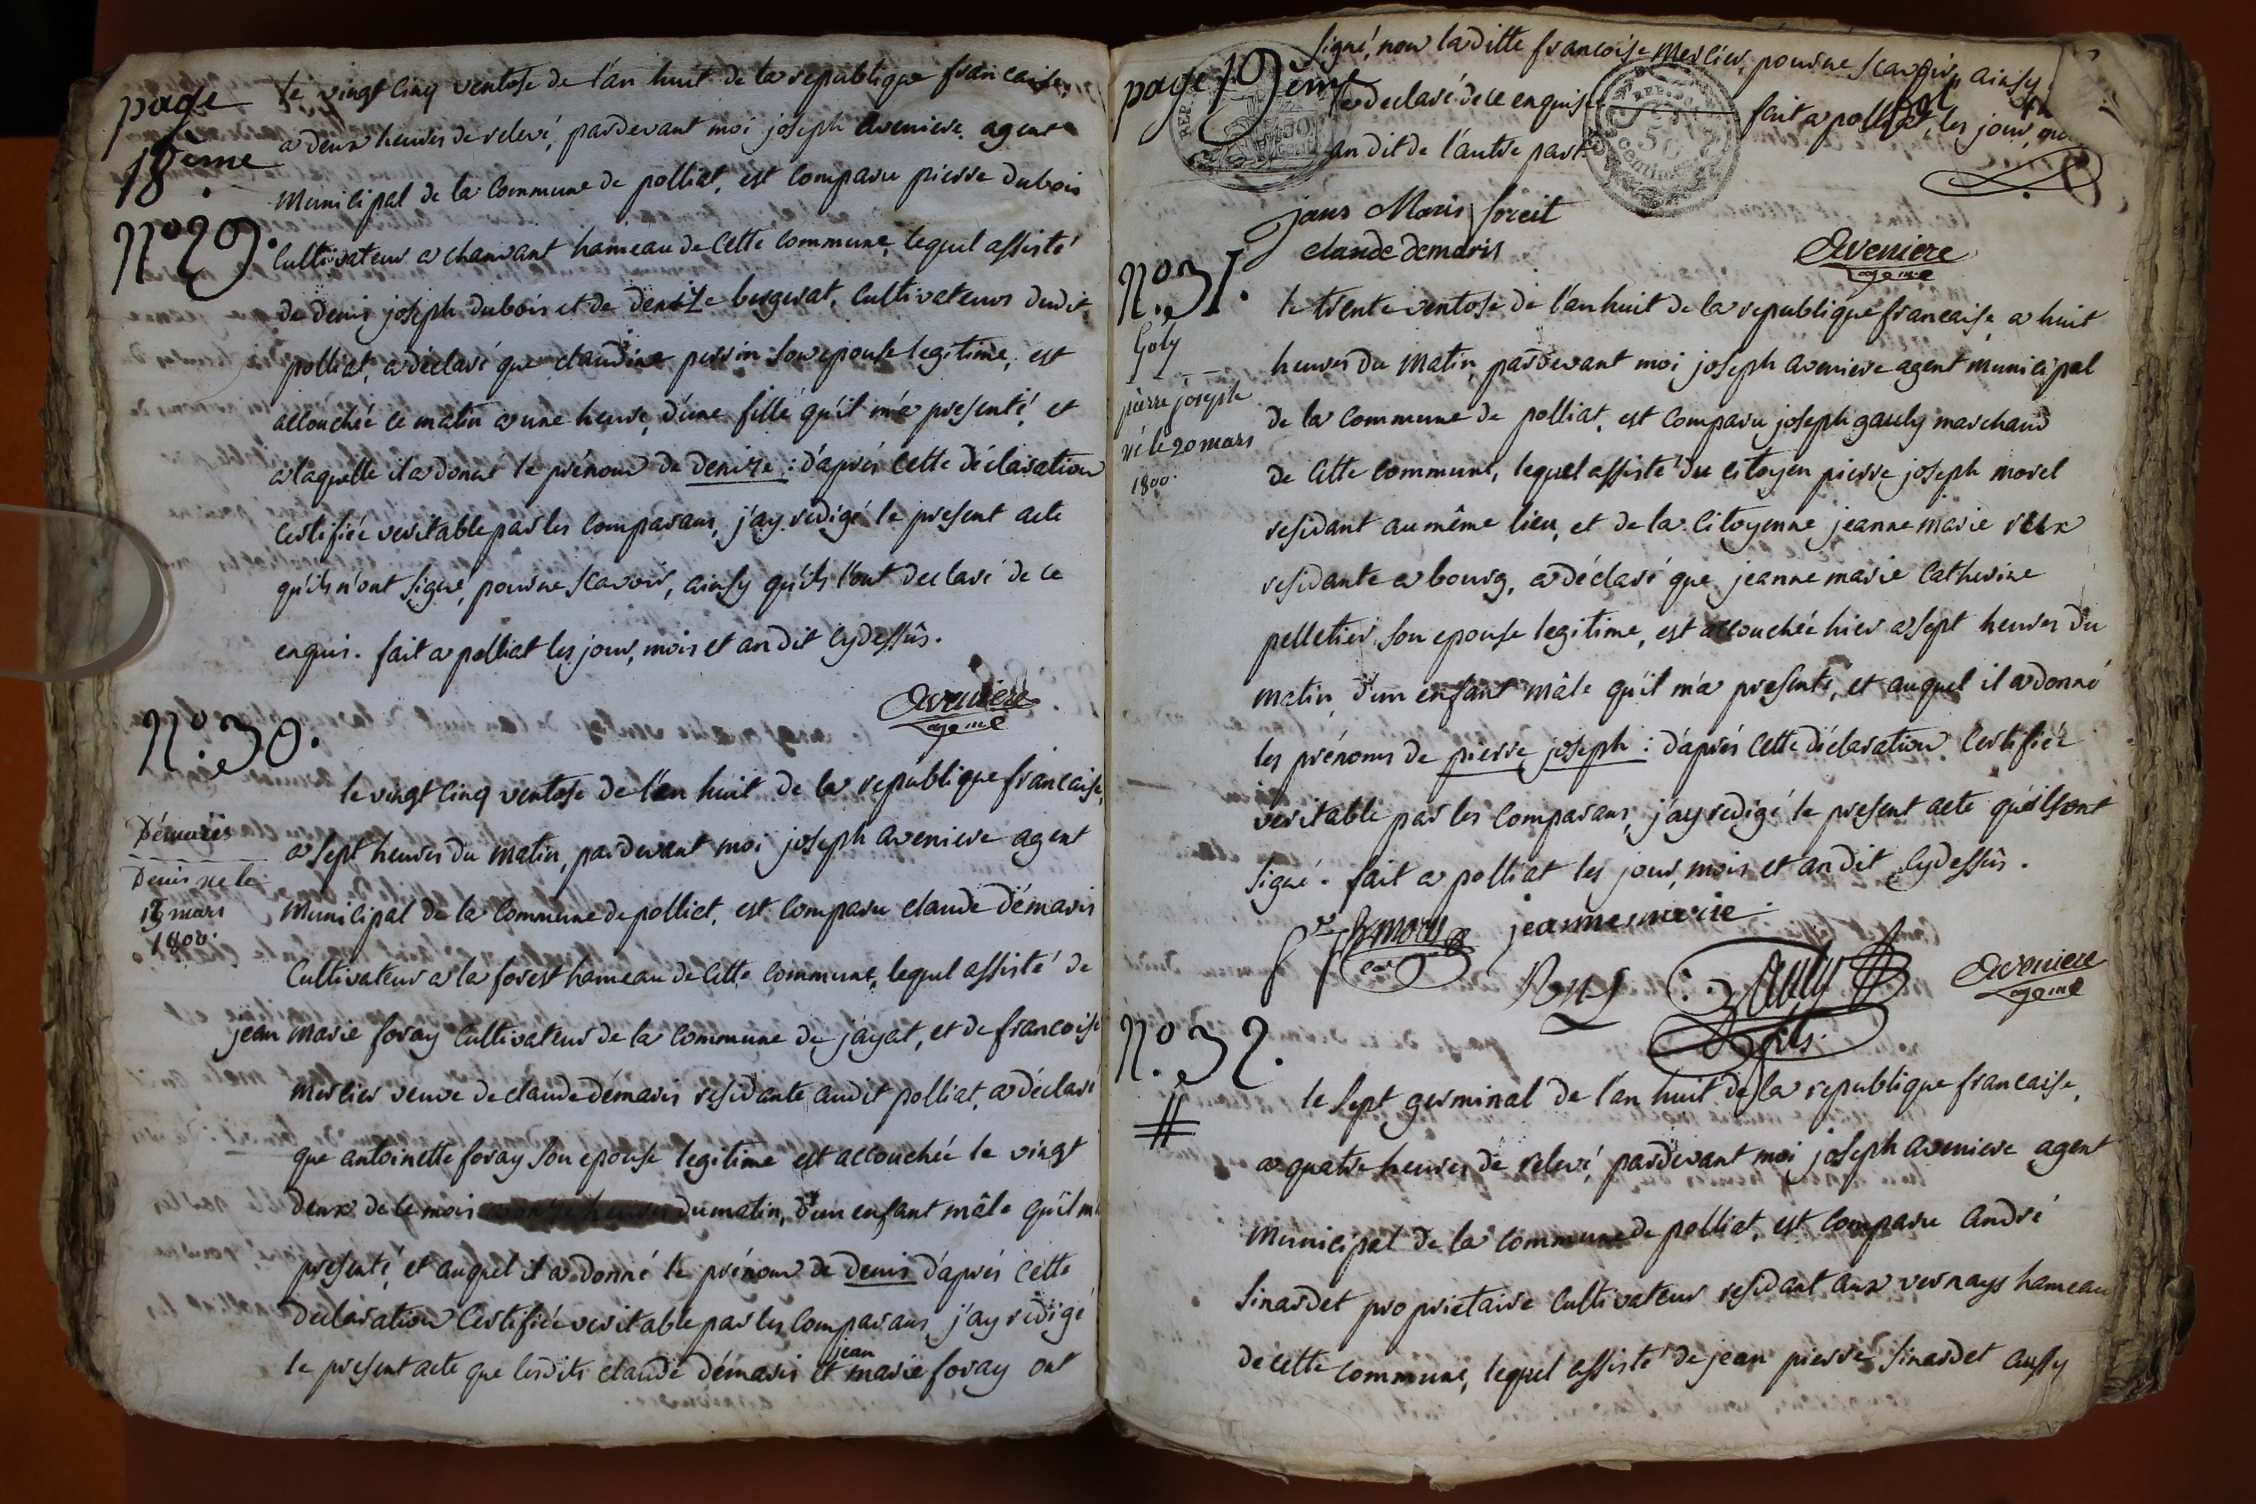 page
18ème
n.º 29.
le vingt cinq ventose de l'an huit de la republique francaise,
a deux heures de relevé, pardevant moi joseph aveniere agent
municipal de la commune de polliat, est comparu pierre dubois
cultivateur a chanvant hameau de cette commune, lequel assisté
de denis joseph dubois et de denize bergerat, cultivateurs dudit
polliat, a déclaré que claudine perrin son epouse legitime, est
accouchée ce matin a une heure, d'une fille qu'il m'a presenté, et
a laquelle il a donné le prénom de denize : d'aprés cette déclaration
certifiée veritable par les comparans, j'ay redigé le present acte
qu'ils n'ont signé, pour ne scavoir, ainsy qu'ils l'ont declaré de ce
enquis. fait a polliat les jour, mois et an dit cydessûs.
Aveniere
agent
n.º 30.
Démaris
Denis né le
13 mars
1800.
le vingt cinq ventose de l'an huit de la republique francaise,
a sept heures du matin, pardevant moi joseph aveniere agent
municipal de la commune de polliat, est comparu claude démaris
cultivateur a la forest hameau de cette commune, lequel assisté de
jean marie foray cultivateur de la commune de jayat, et de francoise
merlier veuve de claude démaris residante audit polliat, a déclaré
que antoinette foray son epouse legitime est accouchée le vingt
deux de ce mois du matin, d'un enfant mâle qu'il m'a
presenté, et auquel il a donné le prénom de denis d'aprés cette
declaration certifiée veritable par les comparans, j'ay redigé
le present acte que lesdits claude démaris et jean marie foray ont
page 19eme
signé, non la ditte francoise merlier, pour ne scavoir, ainsy
a declaré de ce enquise fait a polliat, les jour,
an dit de l'autre part.
jans Maris foreit
claude demaris
Aveniere
agent
n.º 31.
Goly
pierre joseph
né le 20 mars
1800.
le trente ventose de l'an huit de la republique francaise, a huit
heures du matin, pardevant moi joseph aveniere agent municipal
de la commune de polliat, est comparu joseph gauly marchand
de cette commune, lequel assisté du citoyen pierre joseph morel
residant au même lieu, et de la citoyenne jeanne marie
residante a bourg, a déclaré que jeanne marie catherine
pelletier son epouse legitime, est accouchée hier a sept heures du
matin, d'un enfant mâle qu'il m'a presenté, et auquel il a donné
les prénoms de pierre joseph : d'aprés cette déclaration certifiée
veritable par les comparans, j'ay redigé le present acte qu'ils ont
signé. fait a polliat les jour, mois et an dit cydessûs.
jeanne marie
Gauly
fils
Aveniere
agent
n.º 32.
#
le sept germinal de l'an huit de la republique francaise,
a quatre heures de relevé, pardevant moi joseph aveniere agent
municipal de la commune de polliat, est comparu andré
sinardet proprietaire cultivateur residant aux vernays hameau
de cette commune, lequel assisté de jean pierre sinardet aussy